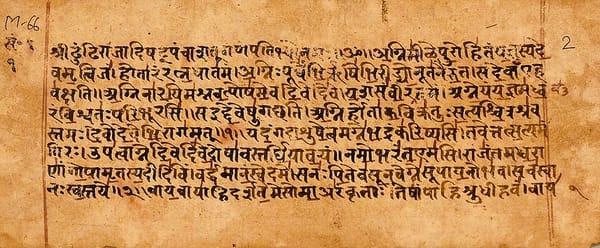 M-66
2
श्रीढुंढिराजादिषट्पंचाशद्गणपतिभ्योनमः॥ॐ॥अग्निमीळेपुरोहितंयज्ञस्यदे
१
वमृत्विजं।होतारंरत्नधातमं।अग्निःपूर्वेभिर्ऋषिभिरीड्योनूतनैरुत।सदेवाँएह
वक्षति।अग्निनारयिमश्नवत्पोषमेवदिवेदिवे।यशसंवीरवत्तमं।अग्नेयंयज्ञमध्व
रंविश्वतःपरिभूरसि।सइद्देवेषुगच्छति।अग्निर्होताकविक्रतुःसत्यश्चित्रश्रव
स्तमः।देवोदेवेभिरागमत्॥१॥यदंगदाशुषेत्वमग्नेभद्रंकरिष्यसि।तवेत्तत्सत्यमं
गिरः।उपत्वाग्नेदिवेदिवेदोषावस्तर्धियावयं।नमोभरंतएमसि।राजंतमध्वरा
णांगोपामृतस्यदीदिविं।वर्धमानंस्वेदमे।सनःपितेवसूनवेग्नेसूपायनोभव।सचस्वा
नःस्वस्तये॥२॥वायवायाहिदर्शतेमेसोमाअरंकृताः।तेषांपाहिश्रुधीहवं।वाय
१